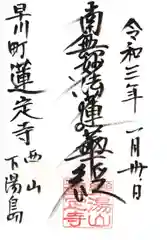 令和三年
一月卅日
南無妙法蓮華経
早川町蓮定寺
西山
下湯島
湯山
定寺